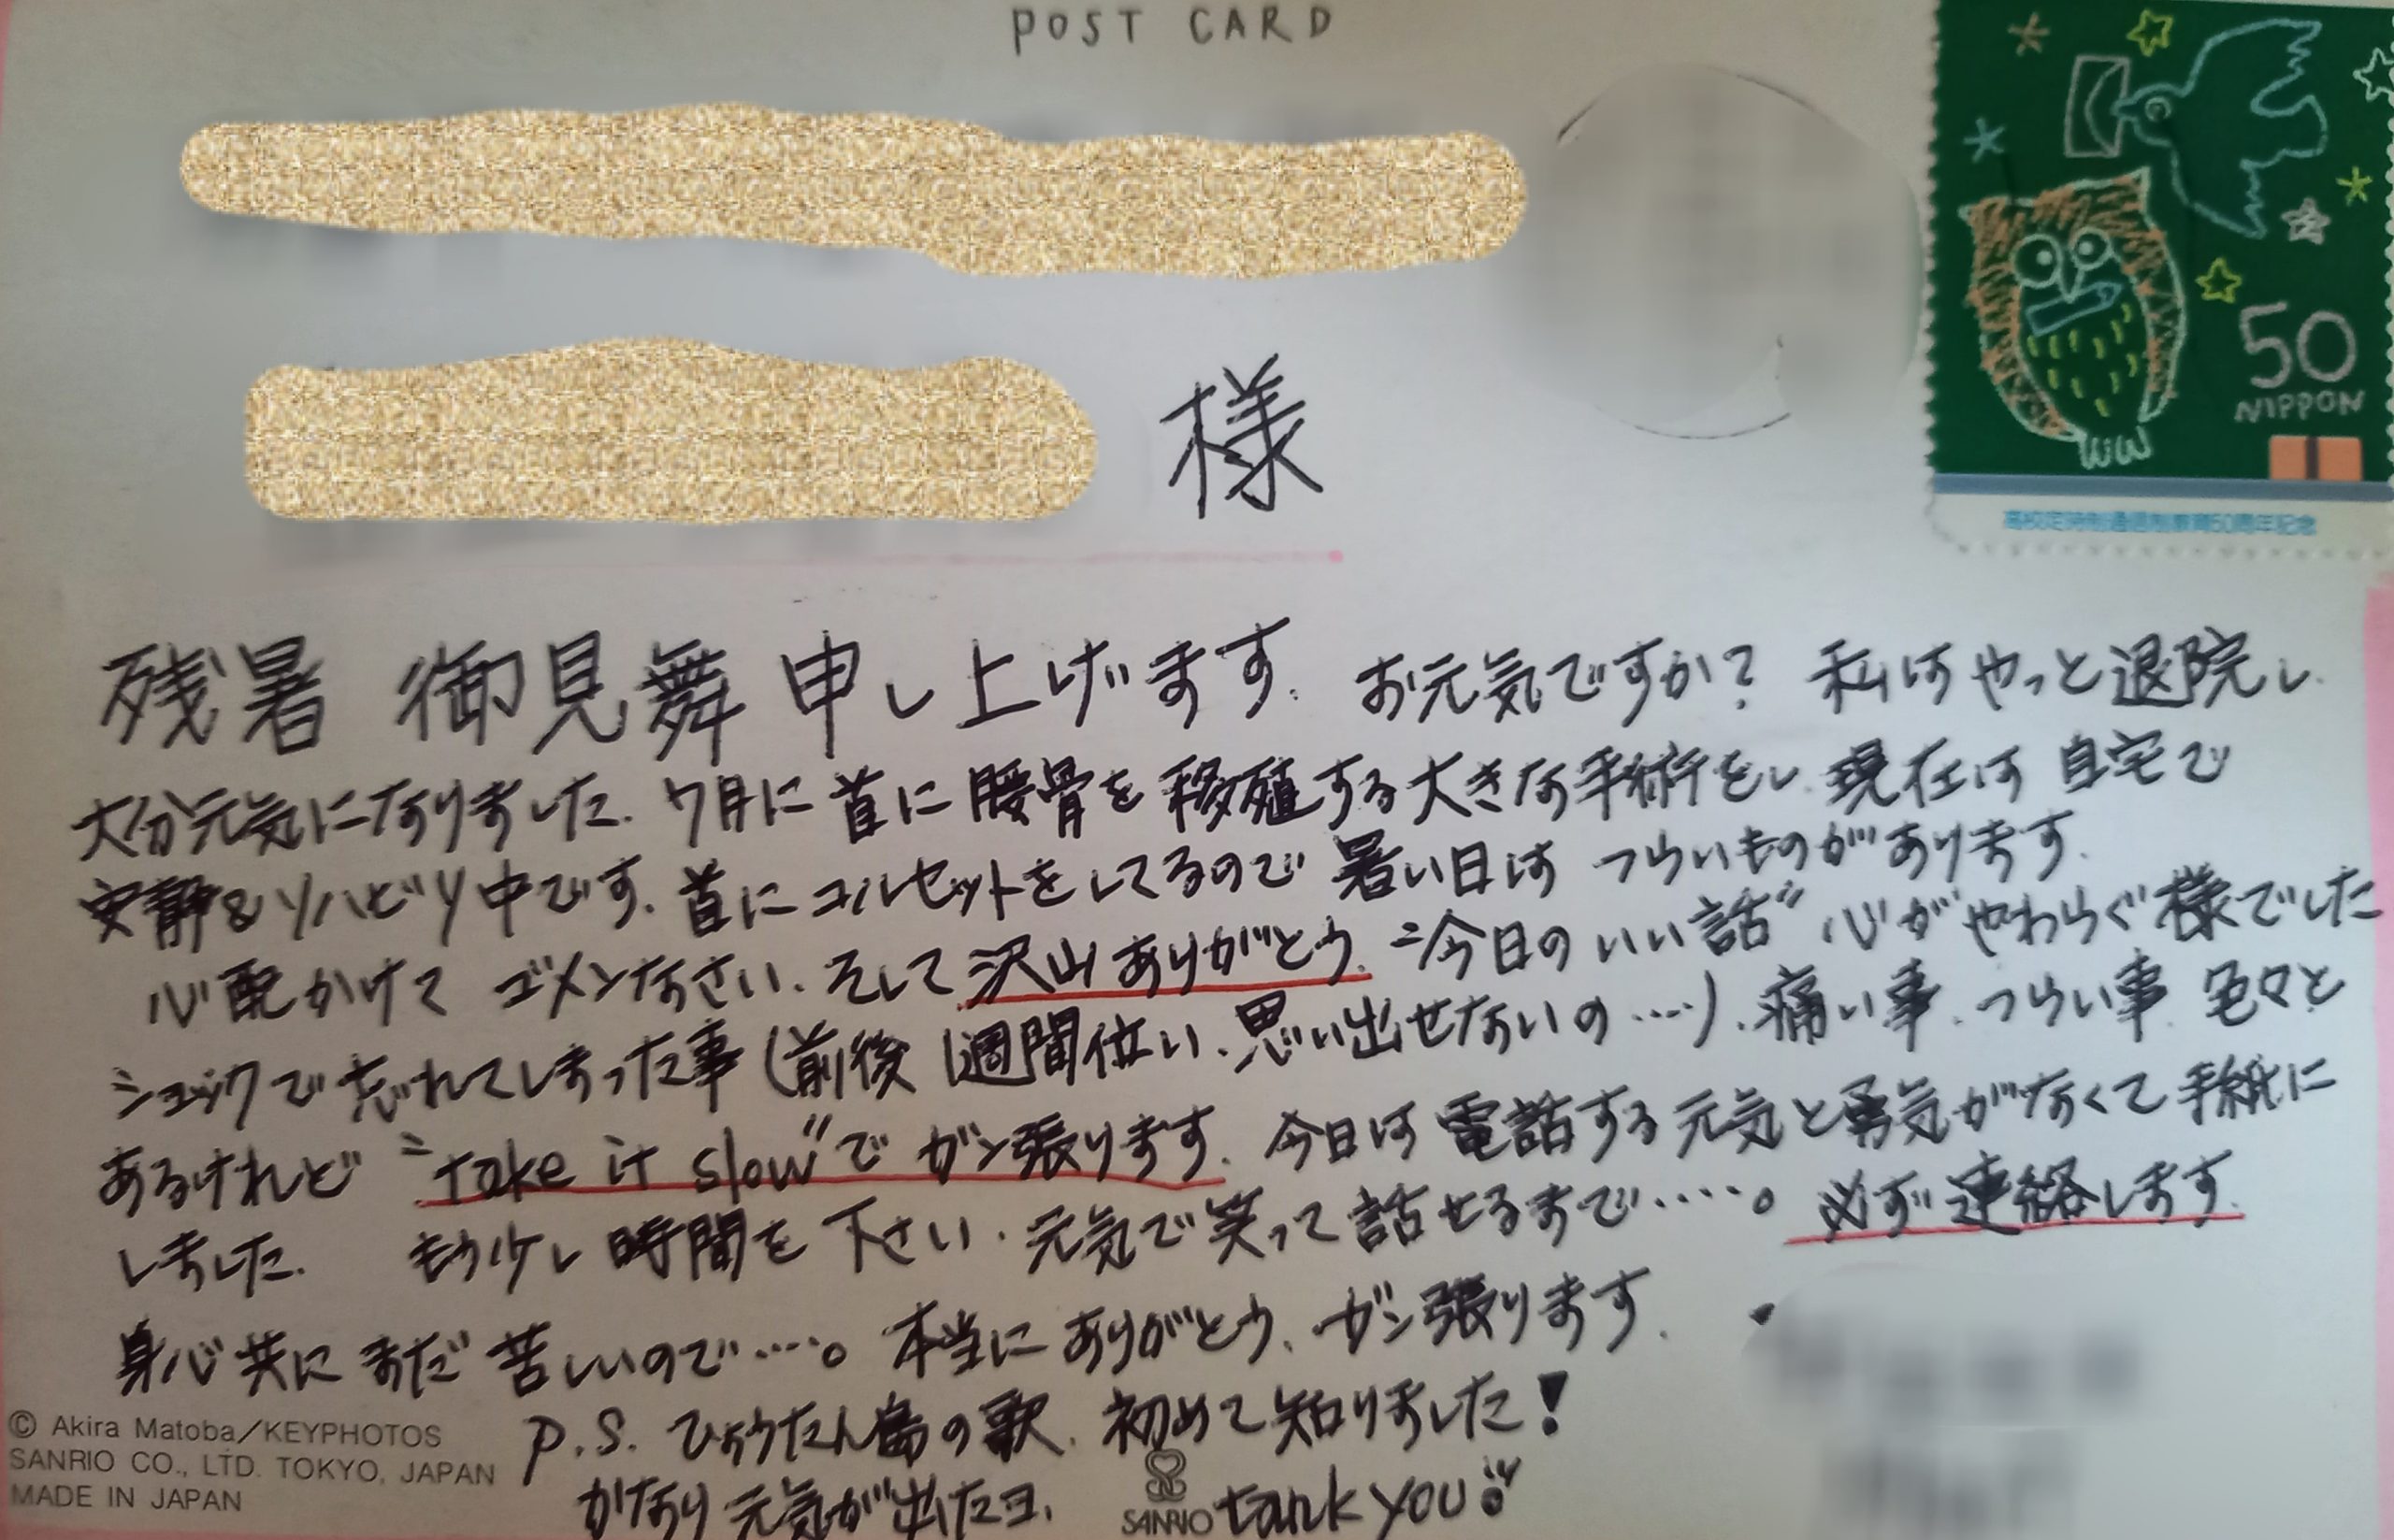 POST CARD
様
50
NIPPON
高校定時制通信制教育50周年記念
残暑 御見舞 申し上げます. お元気ですか? 私はやっと退院し.
大分元気になりました. 7月に首に腰骨を移殖する大きな手術をし. 現在は 自宅で
安静&リハビリ中です. 首にコルセットをしてるので 暑い日は つらいものがあります.
心配かけて ゴメンなさい. そして沢山ありがとう. “今日のいい話” 心がやわらぐ様でした
ショックで忘れてしまった事(前後1週間位い.思い出せないの…). 痛い事. つらい事 色々と
あるけれど “take it slow”で ガン張ります. 今日は電話する元気と勇気がなくて手紙に
しました. もう少し時間を下さい. 元気で笑って話せるまで……。 必ず連絡します.
身心共にまだ苦しいので……。 本当にありがとう. ガン張ります.
P.S. ひょうたん島の歌. 初めて知りました!
かなり元気が出たヨ. tank you
© Akira Matoba/KEYPHOTOS
SANRIO CO., LTD. TOKYO, JAPAN
MADE IN JAPAN
SANRIO